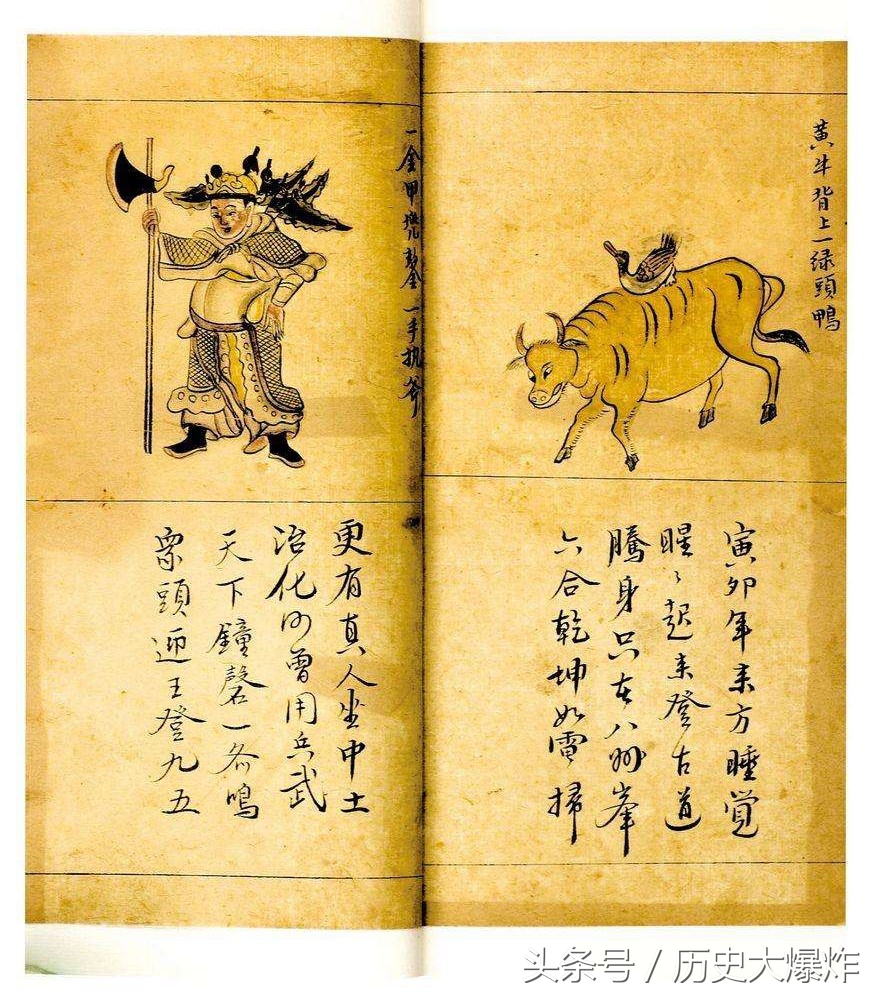 黄牛背上一绿頭鴨
寅卯年来方睡觉
醒々起来登古道
騰身只在八峯
六合乾坤如電掃
一金甲兜鍪一手执斧
更有真人坐中土
治化何曾用兵武
天下鐘磬一各鳴
衆頭迎王登九五
头条号 / 历史大爆炸